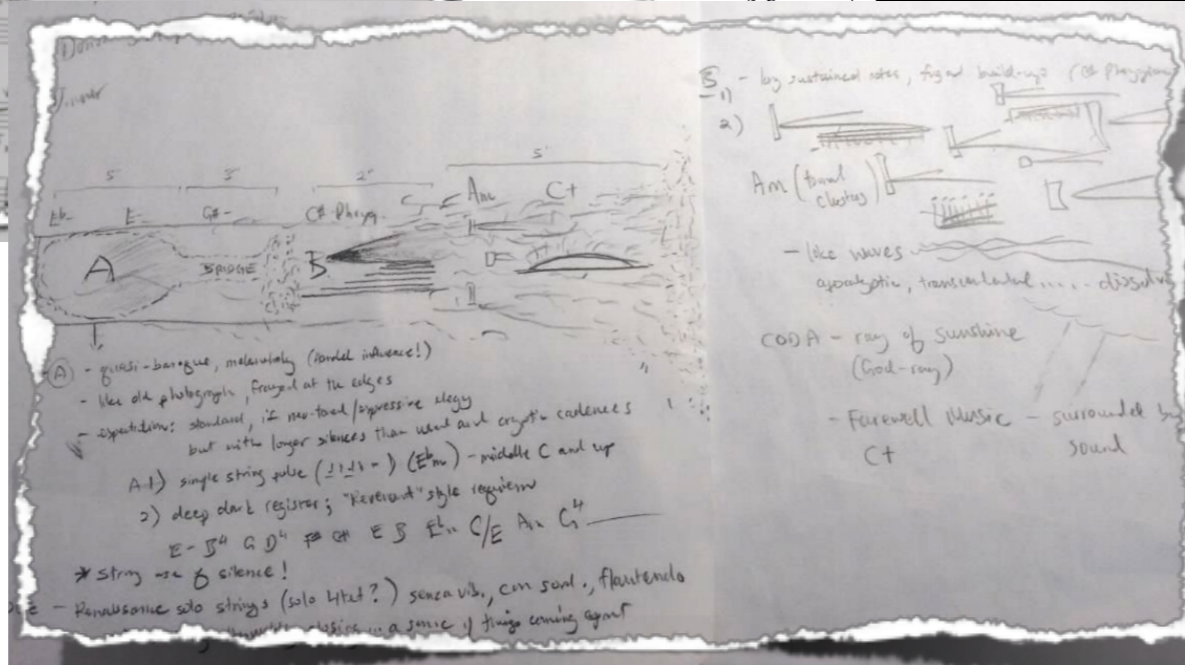 5' 3' 2' 5'
Eb- E- G#- C# Phryg. C Am C+
A BRIDGE B
A - quasi-baroque, melancholy (Handel influence!)
- like old photograph, frayed at the edges
- expectation: standard, if neo-tonal/expressive elegy
but with longer silences than usual and cryptic cadences
A 1) simple string pulse (Ebm) - middle C and up
2) deep dark register; "Reverant" style requiem
E- B4 G D4 F# C# E B Ebm C/E Am G4
* Strong use of silence!
- Renaissance solo strings (solo 4tet?) senza vib., con sord., flautando
in a sonic of things coming apart
B - by sustained notes, frigid build-ups (C# Phrygian
1)
2)
Am (tonal
clusters)
- like waves
apocalyptic, transcendental ..... dissolve
CODA - ray of sunshine
(God-ray)
- Farewell Music - surrounded by
C+ sound